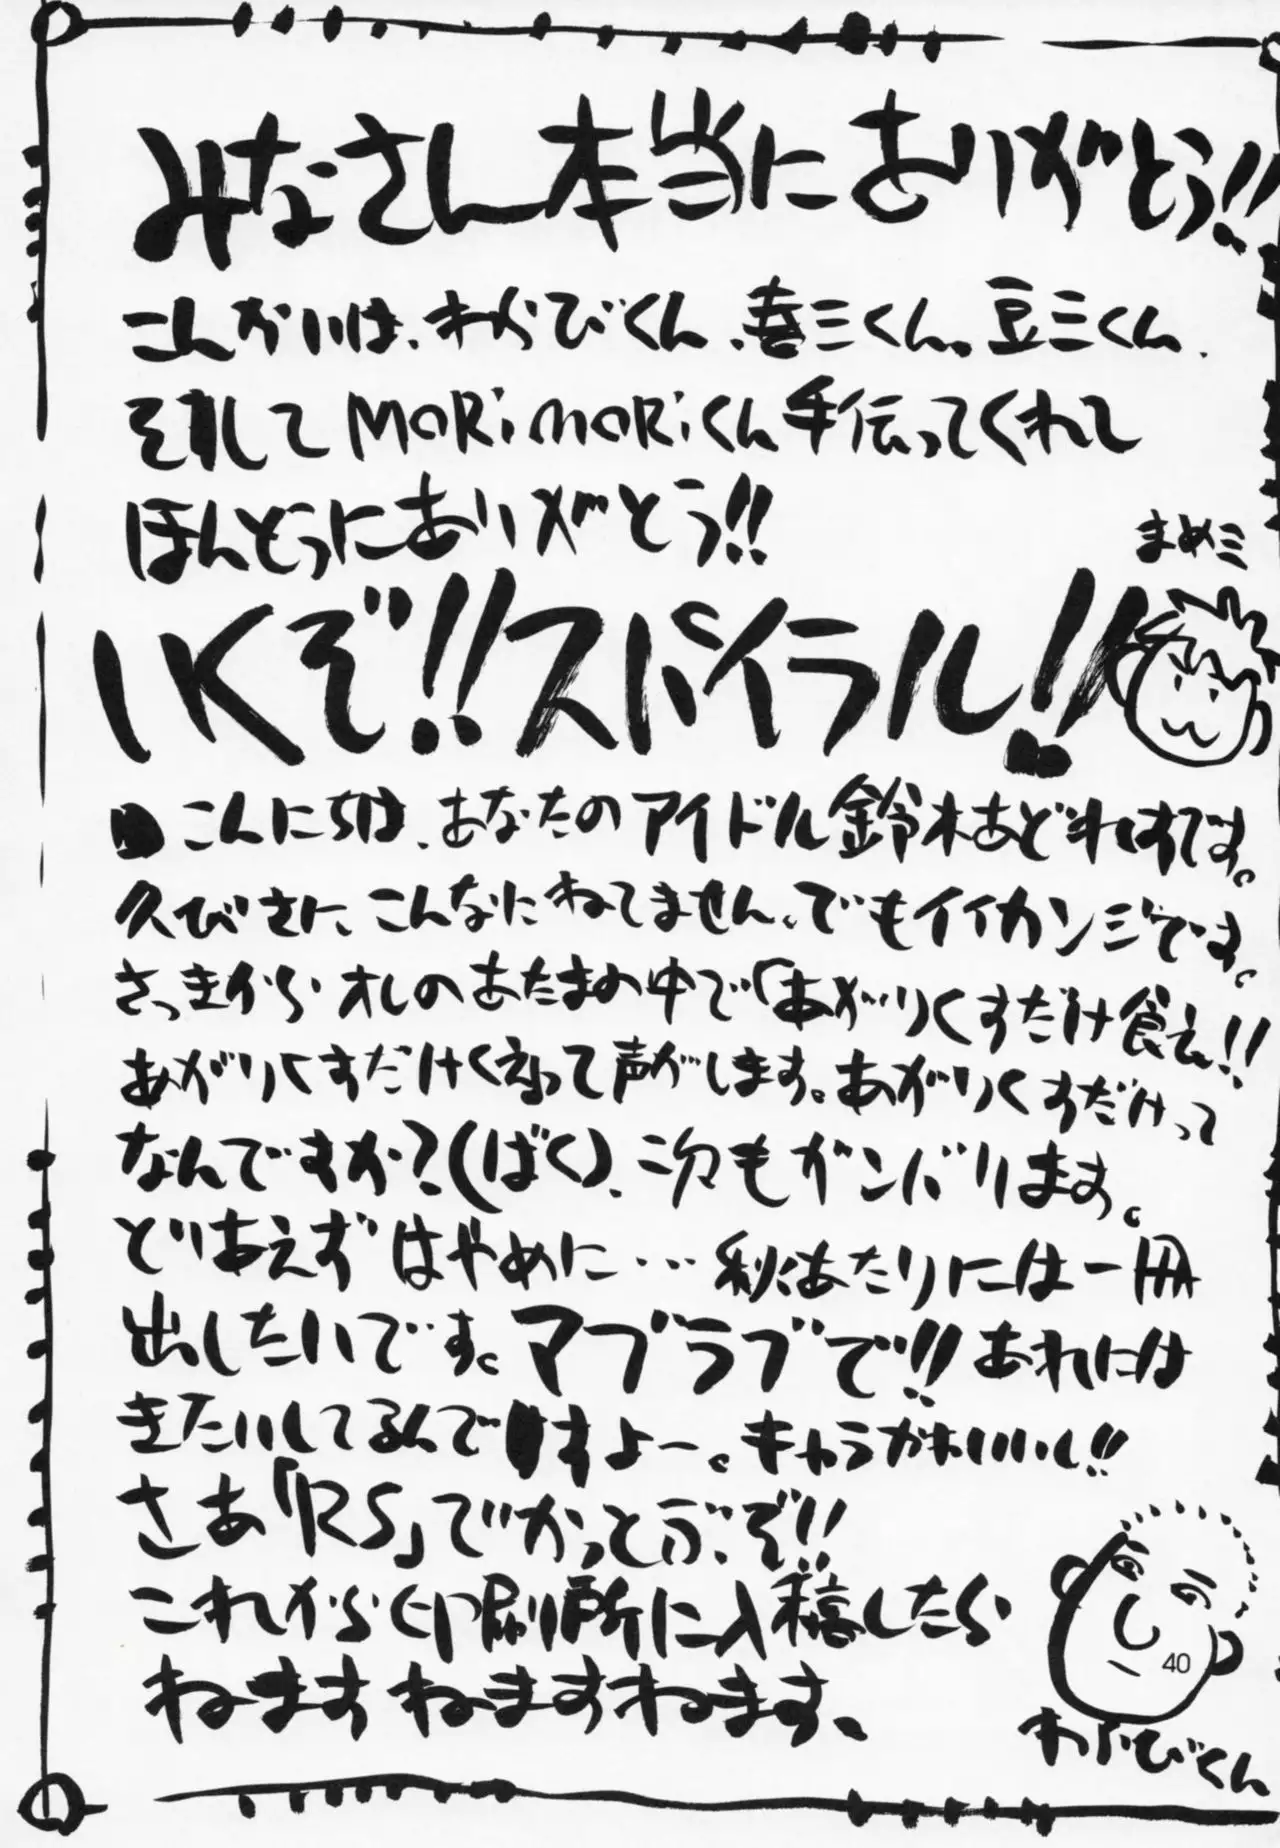 みなさん本当にありがとう!!
こんかいは、わらびくん、喜三くん。豆三くん、
そして MORiMORiくん手伝ってくれて
ほんとうにありがとう!!
まめミ
いくぞ!!スパイラル!!
こんにちは、あなたのアイドル鈴木あどれすです。
久びさに、こんなにねてません、でもイイカンジです。
さっきから オレのあたまの中で「あがりくすだけ食え!!
あがりくすだけくえって声がします。あがりくすだけって
なんですか?(ばく)、次もガンバリます。
とりあえず はやめに… 秋あたりには一冊
出したいです。マブラブで!!あれには
きたいしてるんですよー。キャラかわいいし!!
さあ「RS」でかっとぶぞ!!
これから印刷所に入稿したら
ねます ねますねます、
わらびくん
40